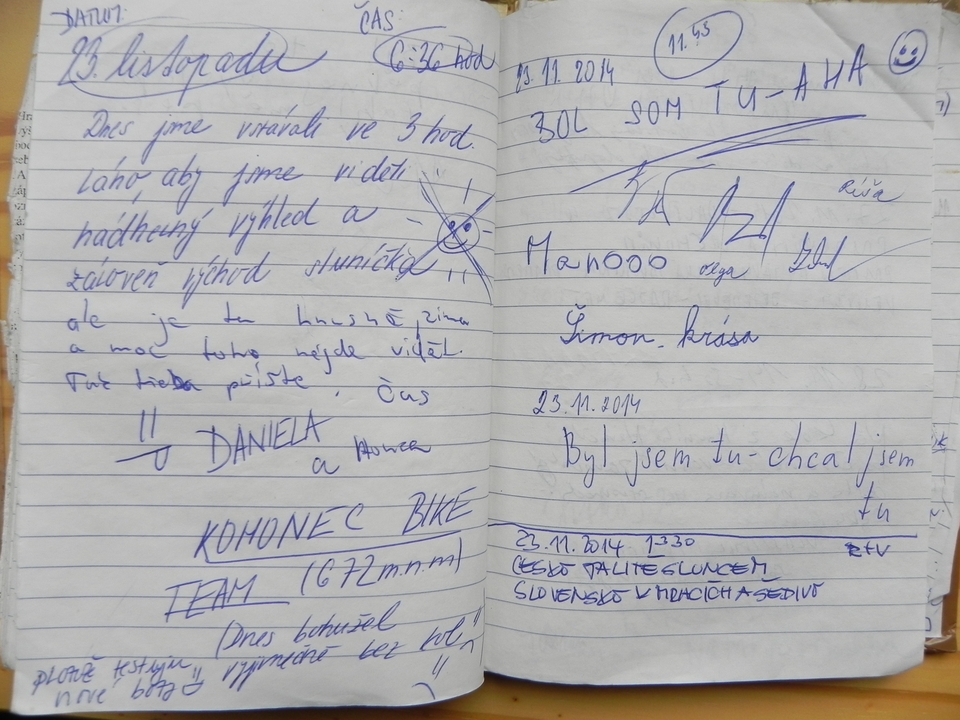 DATUM:
ČAS:
23. listopadu
6:36 hod
Dnes jsme vstávali ve 3 hod.
ráno, aby jsme viděli
nádherný výhled a
zároveň východ sluníčka
ale je tu hnusně, zima
a moc toho nejde vidět.
Tak třeba příště. Čas
DANIELA
a Honza
KOHONEC BIKE
TEAM (672 m.n.m)
(Dnes bohužel
vyjímečně bez kol
nové boty
11.45
23.11.2014
BOL SOM TU-AHA
Ríša
Manooo
Olga
Šimon. krása
23.11.2014
Byl jsem tu-chcal jsem
tu
23.11.2014 1330
ČESKÉ ÚDOLÍ
SLOVENSKÉ V MRACÍCH A ŠEDIVÉ